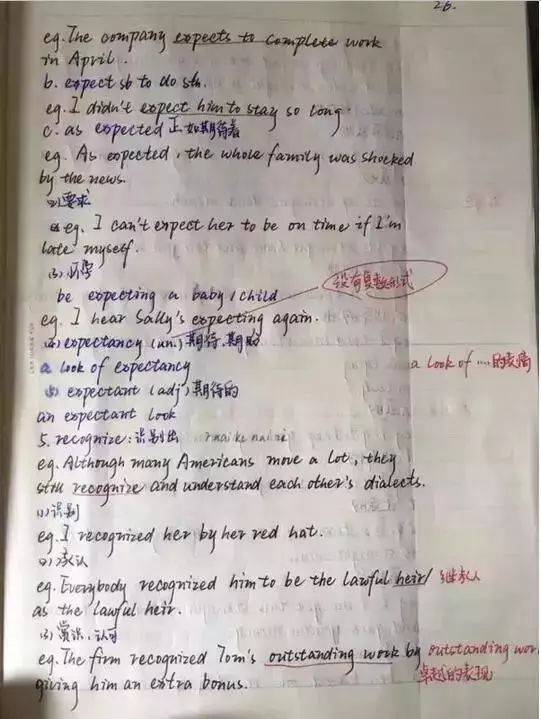 26.
eg. The company expects to complete work
in April.
b. expect sb to do sth.
eg. I didn't expect him to stay so long.
c. as expected 正如期待着
eg. As expected, the whole family was shocked
by the news.
(2) 要求
eg. I can't expect her to be on time if I'm
late myself.
(3) 怀孕
be expecting a baby / child
没有复数形式
eg. I hear Sally's expecting again.
expectancy (un.) 期待、期盼
a look of expectancy
a look of .... 的表情
expectant (adj) 期待的
an expectant look
5. recognize: 识别出
eg. Although many Americans move a lot, they
still recognize and understand each other's dialects.
(1) 识别
eg. I recognized her by her red hat.
(2) 承认
eg. Everybody recognized him to be the lawful heir / 继承人
as the lawful heir.
(3) 赏识、认可
eg. The firm recognized Tom's outstanding work by outstanding wor
giving him an extra bonus. 卓越的表现